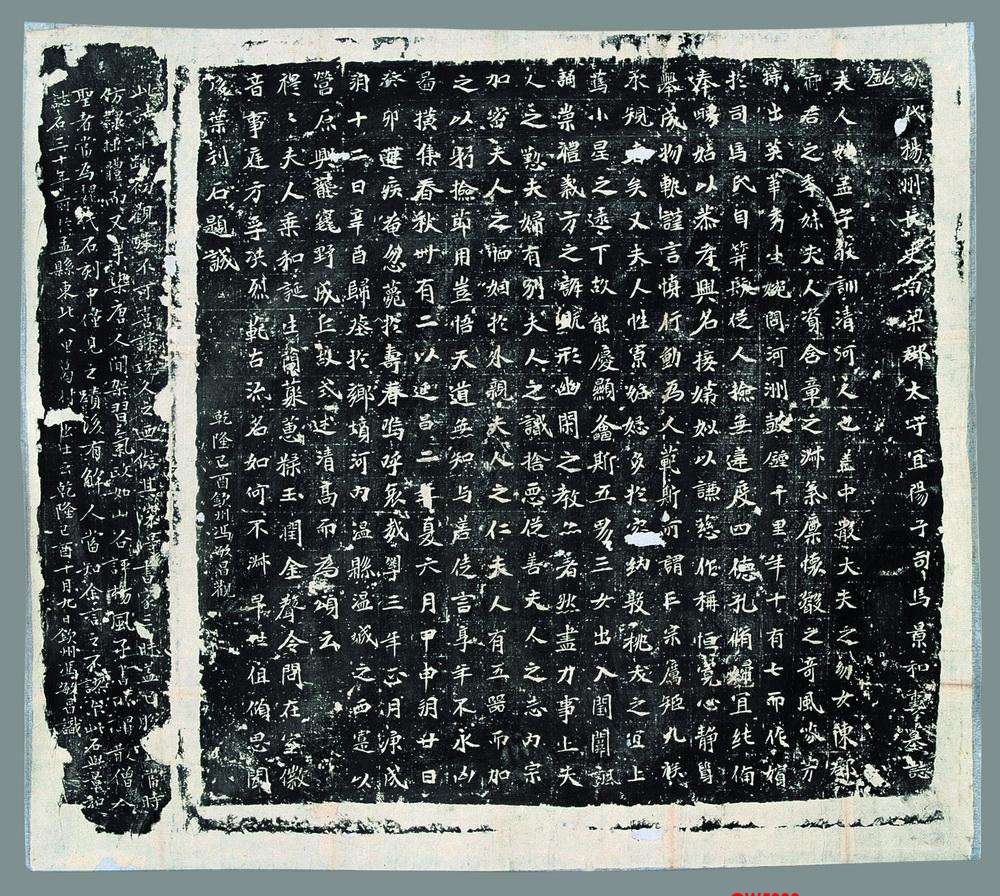 魏代楊州長史南梁郡太守宜陽子司馬景和妻墓誌
銘
夫人姓孟字敬訓清河人也蓋中散大夫之幼女陳郡
府君之季妹夫人資含章之淑氣稟懷叡之奇風芬芳
特出英華秀生婉問河洲鼓鍾千里年十有七而作嬪
於司馬氏自笄髮從人撿無違度四德孔脩婦宜純備
奉舅姑以恭孝興名接娣姒以謙慈作稱恒寬心靜質
舉成物軌謹言慎行動為人範斯所謂三宗厲矩九族
承規者矣又夫人性寡妬忌多於容納敦桃夭之宜上
篤小星之逮下故能慶顯螽斯五男三女出入閨闈諷
誦崇禮義方之誨既形幽閑之教亦著然盡力事上夫
人之懃夫婦有別夫人之識捨惡從善夫人之志內宗
加密夫人之恤姻於外親夫人之仁夫人有五器而加
之以躬撿節用豈悟天道無知与善徒言享年不永凶
圖橫集春秋卌有二以延昌二年夏六月甲申朔廿日
癸卯遘疾奄忽薨於壽春嗚呼哀哉粵三年正月庚戌
朔十二日辛酉歸塟於鄉墳河內溫縣溫城之西寔以
營原興壟窆野成丘故式述清高而為頌云
穆〻夫人乘和誕生蘭蘂蕙糅玉潤金聲令問在室徽
音事庭方孚洪烈範古流名如何不淑早世徂傾思聞
後葉刊石題誠
乾隆己酉欽州馮敏昌觀
此誌初觀 不可 久之
仿 又 唐人間架習氣 如山谷評楊風子書 散僧入
聖者當為 代石刻中僅見之蹟 有解人當知余言之不謬 此石
誌石三十年 於孟縣東北八里葛村 乾隆己酉十月九日欽州馮敏昌識